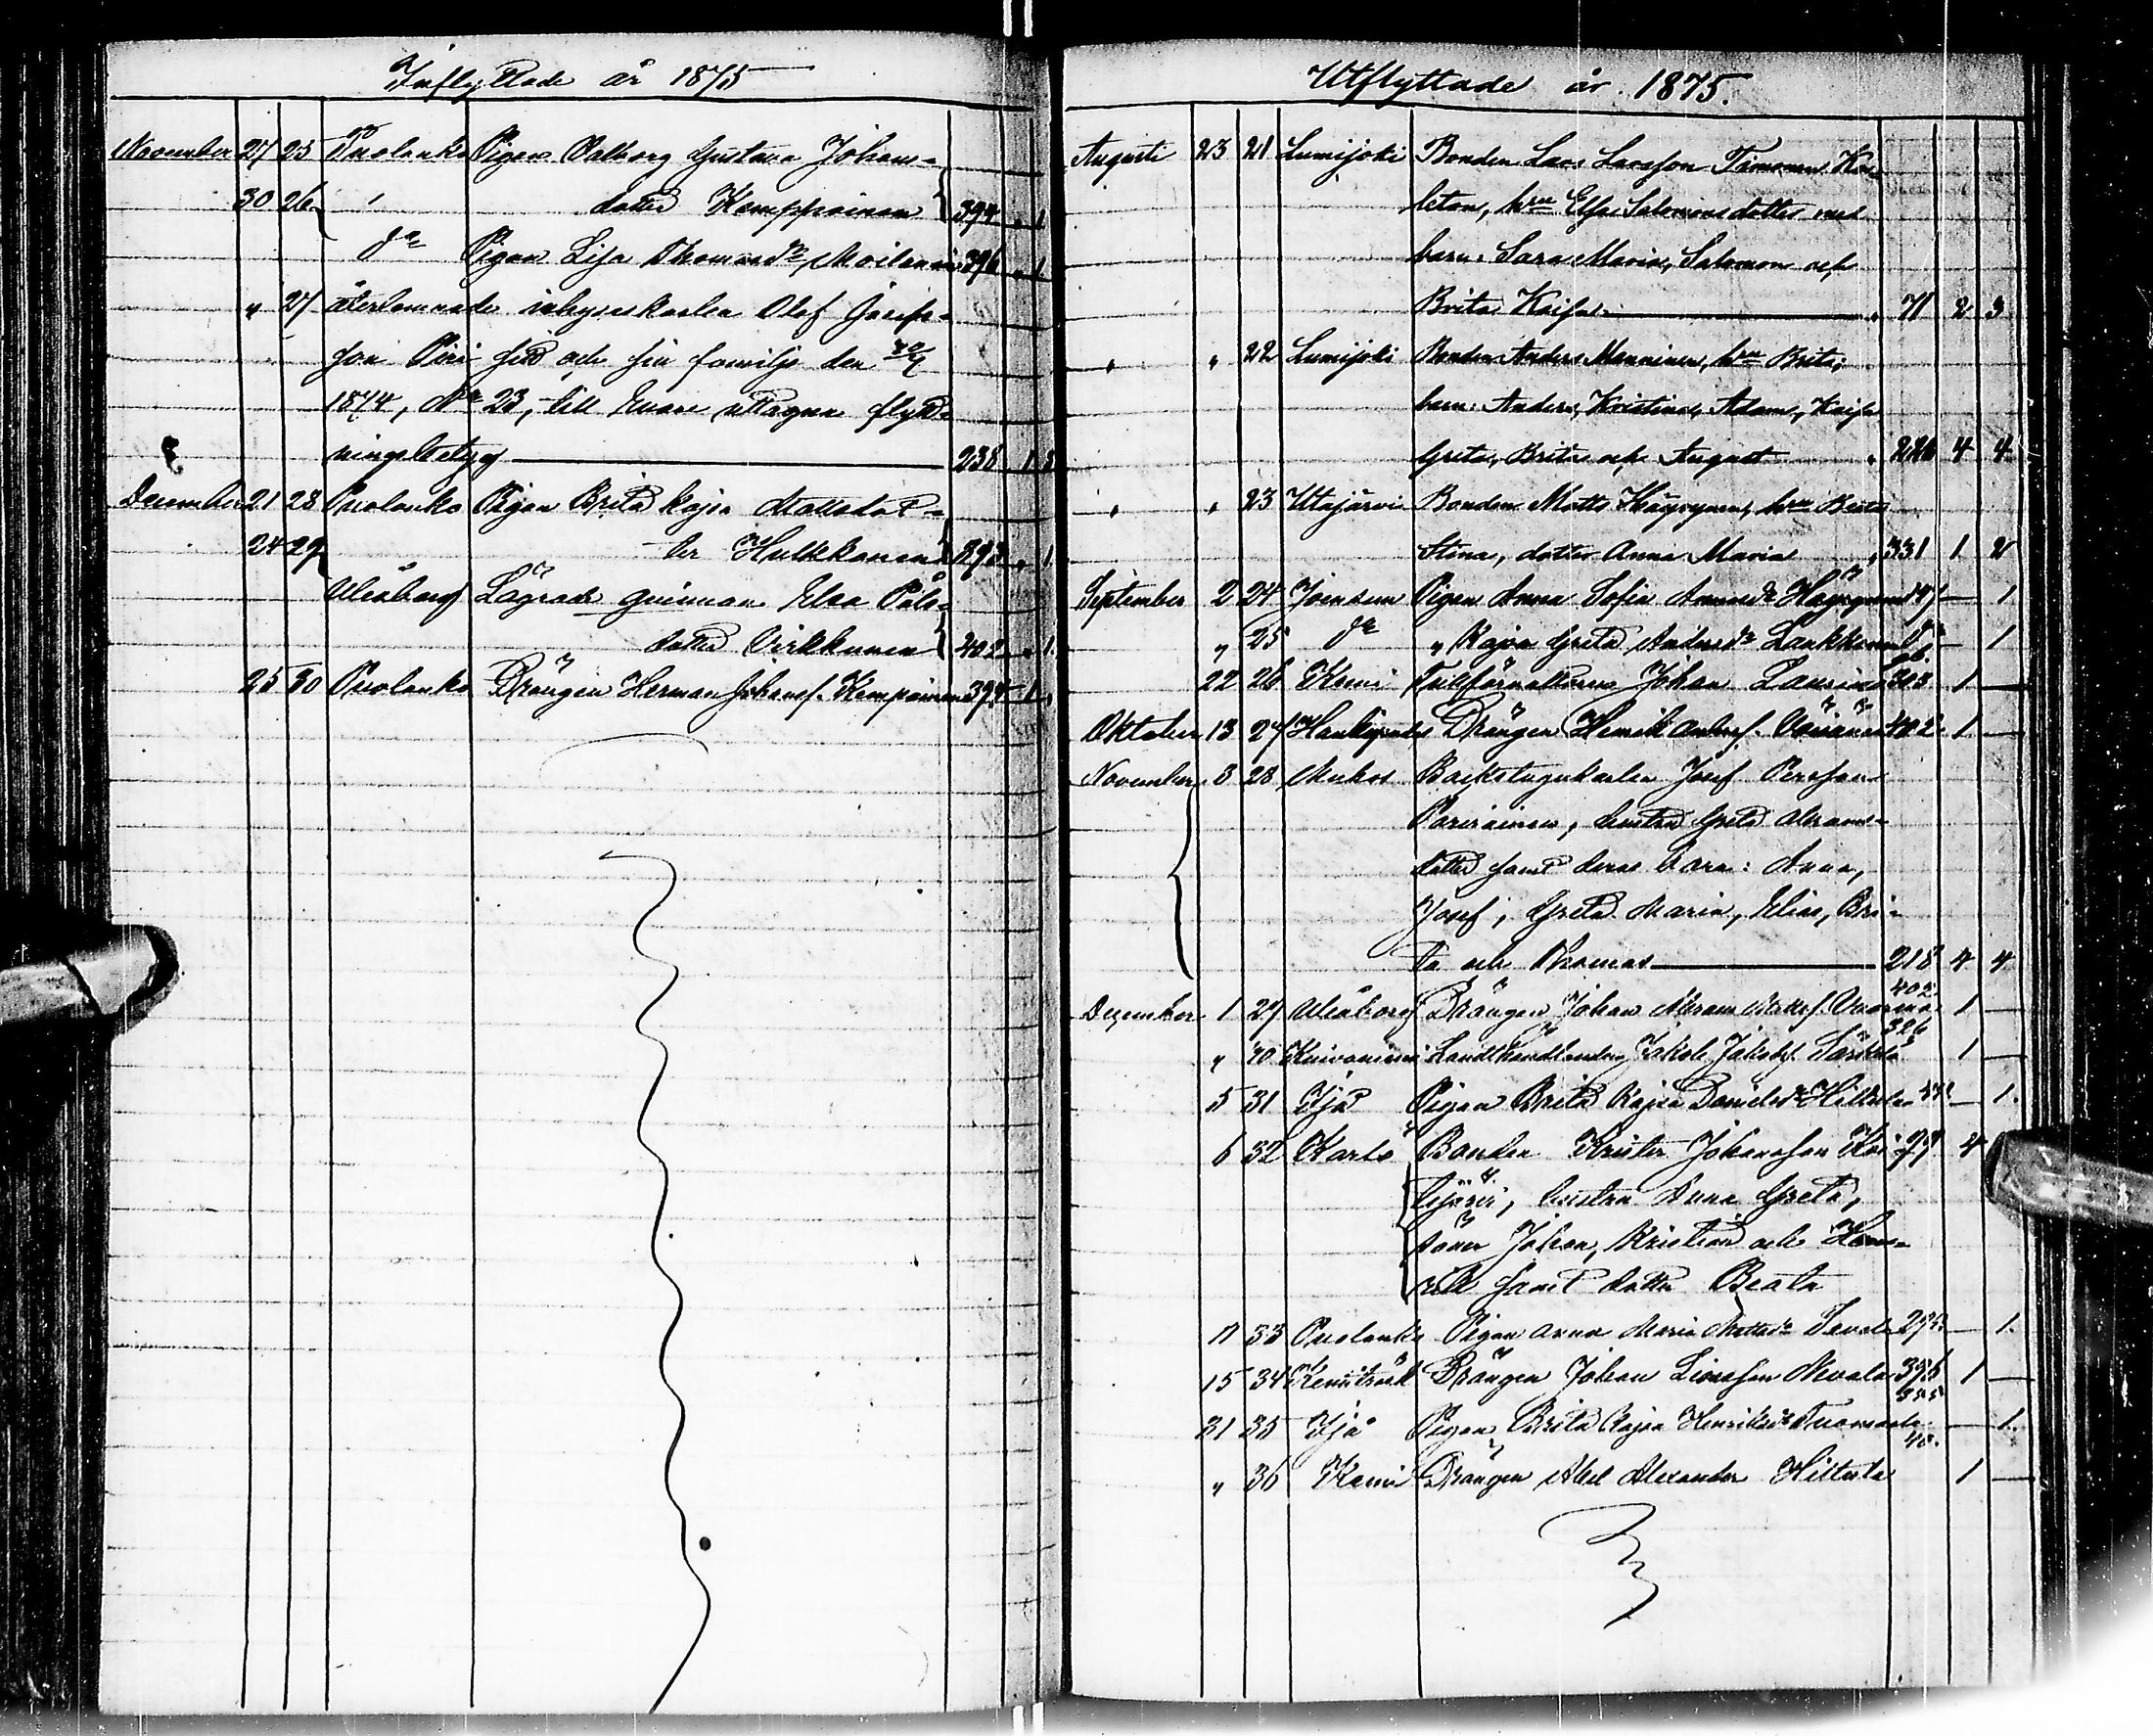 Inflyttade år 1875
November 27 25 Puolanko Pigan Valborg Gustava Johans-
30 26 " dotter Kemppainen 394 " 1
do Pigan Lisa Thomasdr Moilanen 396 " 1
" 27 återlemnade inhyseskarlen Olof Josefs-
son Piri sitt och sin familjs den
1874, No 23, till Enare uttagna flytt-
ningsbetyg 238 1 3
December 21 28 Puolanko Pigan Brita Kajsa Mattsdot-
24 29 ter Hulkkonen 393 " 1
Uleåborg Lösgifna qvinnan Elsa Påls-
dotter Virkkunen 402 " 1
25 30 Puolanko Drängen Herman Johanss. Kempainen 394 1 "
Utflyttade år 1875.
Augusti 23 21 Lumijoki Bonden Lars Larsson Timonen
hru Elsa Salomonsdotter med
barn: Sara Maria, Salomon och
Brita Kaisa " 71 2 3
" " 22 Lumijoki Bonden Anders Manninen, hru Brita,
barn: Anders, Kristina, Adam, Kaisa
Greta, Brita och August " 226 4 4
" " 23 Utajärvi Bonden Matts Häyrynen, hru Brita
Stina, dotter Anna Maria " 331 1 2
September 2 24 Joensuu Pigan Anna Sofia Häyrynen — 1
" 25 do " Kajsa Greta Andersdr Laukkanen — 1
22 26 Kemi Tullförvaltaren Johan 303 1 —
Oktober 13 27 Haukipudas Drängen Henrik Anderss. Väisänen 402 1 —
November 3 28 Muhos Backstugukarlen Josef Persson
Parviainen, hustru Greta Abrams-
dotter samt deras barn: Anna,
Josef, Greta Maria, Elias, Bri-
ta och Thomas 218 4 4
402
December 1 29 Uleåborg Drängen Johan Abram Mattss. 1 —
326
" 30 Kuivaniemi Landthandlanden Jakob Jakobss. Särkelä 1 —
5 31 Ijå Pigan Brita Kajsa Danielsdr Hiltula — 1.
6 32 Karlö Bonden Krister Johansson Koi- 4
tijärvi, hustrun Anna Greta,
söner Johan, Kristian och Hen-
rik samt dotter Beata
11 33 Puolanko Pigan Anna Maria Mattsdr — 1.
15 34 Kemiträsk Drängen Johan Nevala 1 —
355
31 35 Ijå Pigan Brita Kajsa Henriksdr Tuomaala — 1.
40.
" 36 Kemi Drängen Abel Alexander Hiltula 1 —